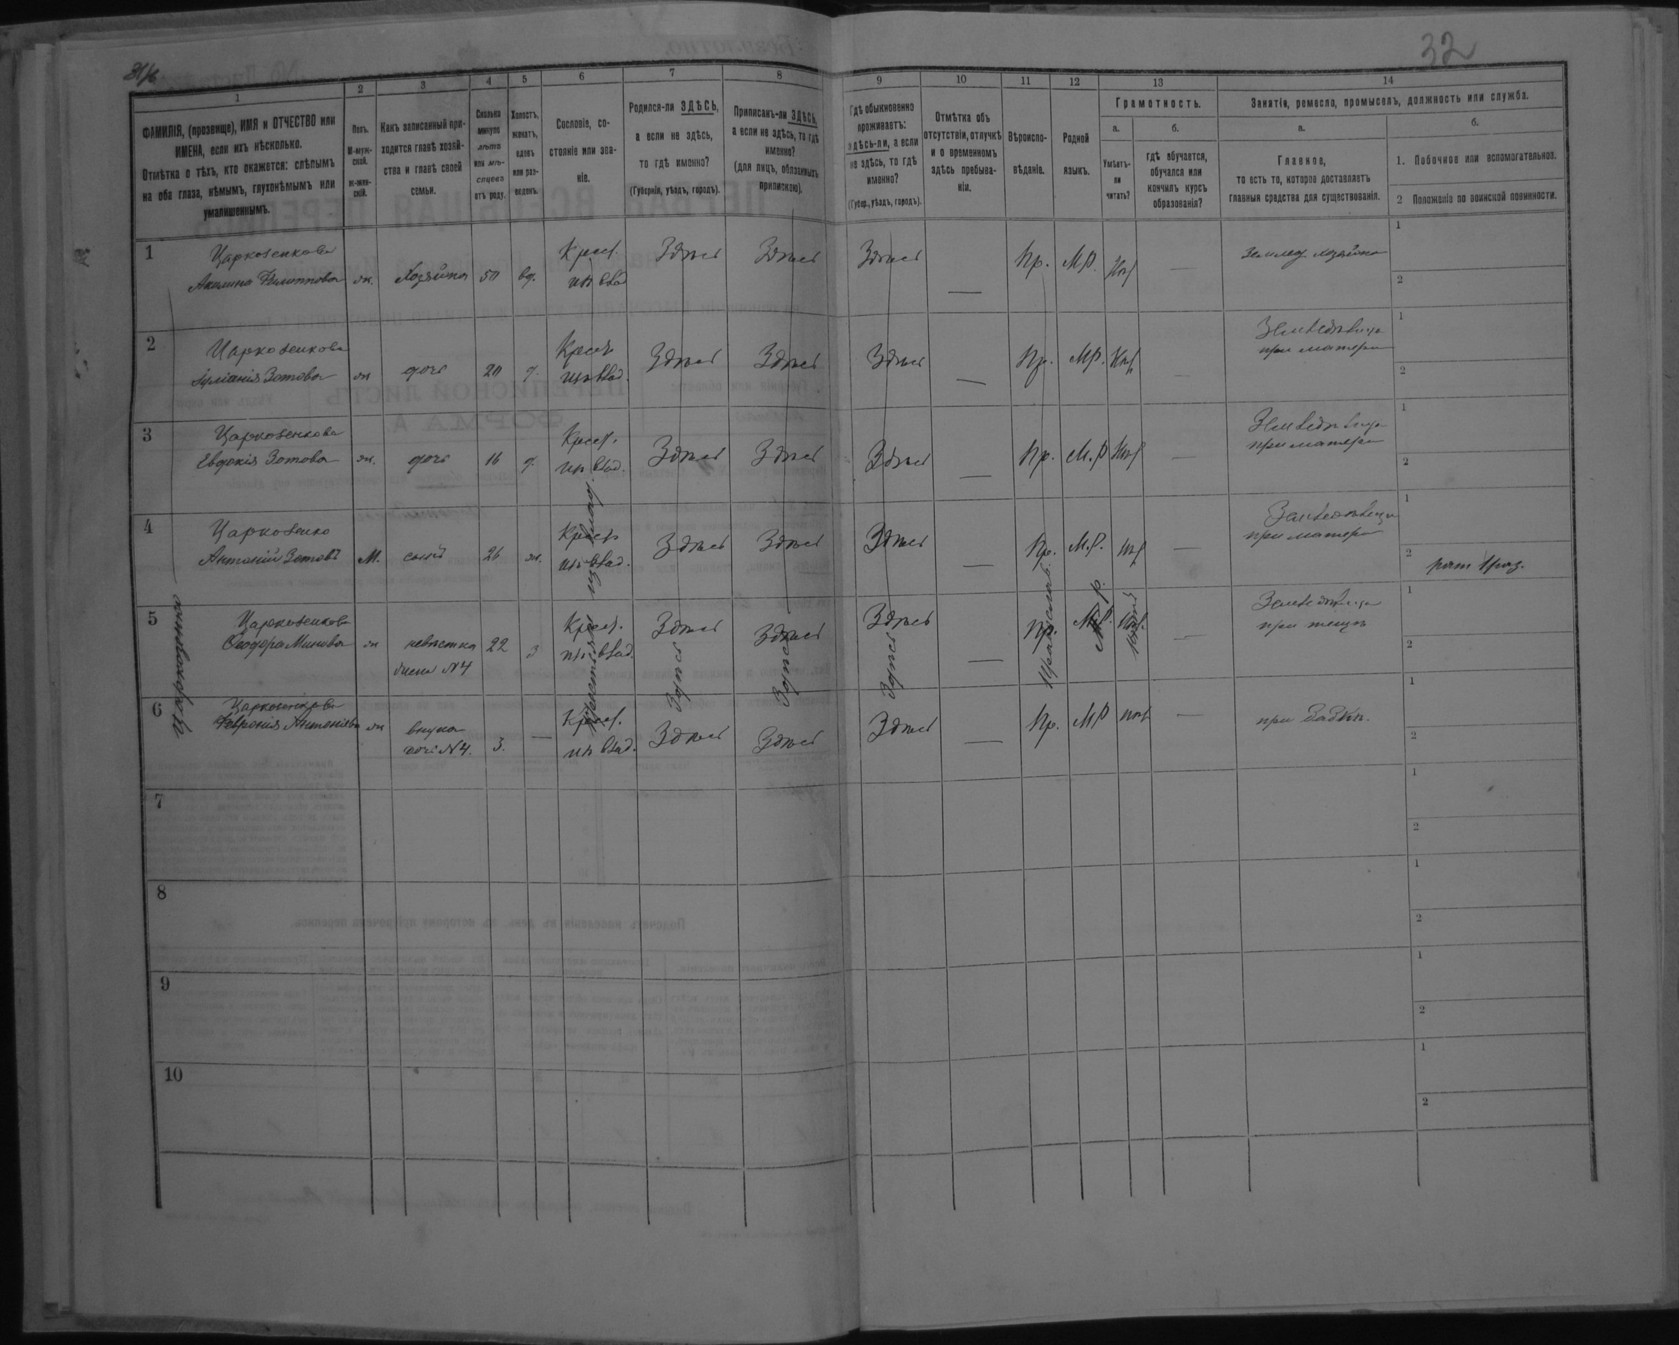 32
1
2
3
4
5
6
7
8
9
10
11
12
13
14
ФАМИЛІЯ, (прозвище), ИМЯ и ОТЧЕСТВО или
ИМЕНА, если ихъ нѣсколько.
Отмѣтка о тѣхъ, кто окажется: слѣпымъ
на оба глаза, нѣмымъ, глухонѣмымъ или
умалишеннымъ.
Полъ.
М-муж-
ской.
Ж-жен-
скій.
Какъ записанный при-
ходится главѣ хозяй-
ства и главѣ своей
семьи.
Сколько
минуло
лѣтъ
или мѣ-
сяцевъ
отъ роду.
Холостъ,
женатъ,
вдовъ
или раз-
веденъ.
Сословіе, со-
стояніе или зва-
ніе.
Родился-ли ЗДѢСЬ,
а если не здѣсь,
то гдѣ именно?
(Губернія, уѣздъ, городъ).
Приписанъ-ли ЗДѢСЬ,
а если не здѣсь, то гдѣ
именно?
(для лицъ, обязанныхъ
припискою).
Гдѣ обыкновенно
проживаетъ:
здѣсь-ли, а если
не здѣсь, то гдѣ
именно?
(Губер., уѣздъ, городъ).
Отмѣтка объ
отсутствіи, отлучкѣ
и о временномъ
здѣсь пребыва-
ніи.
Вѣроиспо-
вѣданіе.
Родной
языкъ.
Грамотность.
а.
Умѣетъ-
ли
читать?
б.
гдѣ обучается,
обучался или
кончилъ курсъ
образованія?
Занятія, ремесло, промыселъ, должность или служба.
а.
Главное,
то есть то, которое доставляетъ
главныя средства для существованія.
б.
1. Побочное или вспомогательное.
2 Положеніе по воинской повинности.
1
Царковенкова
Акилина Филиппова
ж.
Хозяйка
50
вд.
Крест.
изъ влад.
Здѣсь
Здѣсь
Здѣсь
—
Пр.
М.Р.
Нѣт
—
Землед. хозяйка
1
2
2
Царковенкова
Іуліанія Зотова
ж
дочь
20
д.
Крест.
изъ влад.
Здѣсь
Здѣсь
Здѣсь
—
Пр.
М.Р.
Нѣт
—
при матери
1
2
3
Царковенкова
Евдокія Зотова
ж.
дочь
16
д.
Крест.
изъ влад.
Здѣсь
Здѣсь
Здѣсь
—
Пр.
М.Р.
Нѣт
—
при матери
1
2
4
Царковенко
Антоній Зотовъ
М.
сынъ
26
ж.
Крест.
изъ влад.
Здѣсь
Здѣсь
Здѣсь
—
Пр.
М.Р.
Нѣт
—
при матери
1
2
5
Царковенкова
Ѳеодора Минова
ж
невѣстка
жена №4
22
з
Крест.
изъ влад.
Здѣсь
Здѣсь
Здѣсь
—
Пр.
М.Р.
—
1
2
6
Царковенкова
Февронія Антоніева
ж
внука
дочь №4.
3.
—
Крест.
изъ влад.
Здѣсь
Здѣсь
Здѣсь
—
Пр.
М.Р
Нѣт
—
при бабкѣ.
1
2
7
1
2
8
1
2
9
1
2
10
1
2
Здѣсь
Здѣсь
Здѣсь